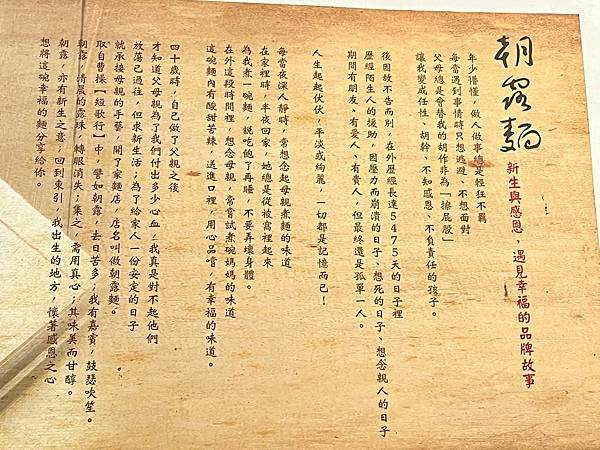 朝露麵
新生與感恩，遇見幸福的品牌故事
年少懵懂，做人做事總是輕狂不羈
每當遇到事情時只想逃避、不想面對
父母總是會替我的胡作非為「擦屁股」
讓我變成任性、胡幹、不知感恩、不負責任的孩子。
後因故不告而別，在外歷經長達5475天的日子裡
歷經陌生人的援助，因壓力而崩潰的日子、想死的日子、想念親人的日子
期間有朋友、有愛人、有貴人，但最終還是孤單一人。
人生起起伏伏，平淡或絢麗，一切都是記憶而己！
每當夜深人靜時，常想念起母親煮麵的味道
在家裡時，半夜回家，她總是從被窩裡起來
為我煮一碗麵，說吃飽了再睡，不要弄壞身體。
在外這段時間裡，想念母親，常嘗試煮碗媽媽的味道
這碗麵內有酸甜苦辣，送進口裡，用心品嚐，有幸福的味道。
四十歲時，自己做了父親之後
才知道父母親為了我們付出多少心血，我真是對不起他們
放蕩已過往，但求新生活；為了給家人一份安定的日子
就承接母親的手藝，開了家麵店，店名叫做朝露麵。
取自曹操【短歌行】中，譬如朝露，去日苦多；我有嘉賓，鼓瑟吹笙。
朝露，清晨的露珠，轉眼消失；集之，需用真心；其味美而甘醇。
朝露，亦有新生之意；回到東引，我出生的地方，懷著感恩之心
想將這碗幸福的麵分享給你。